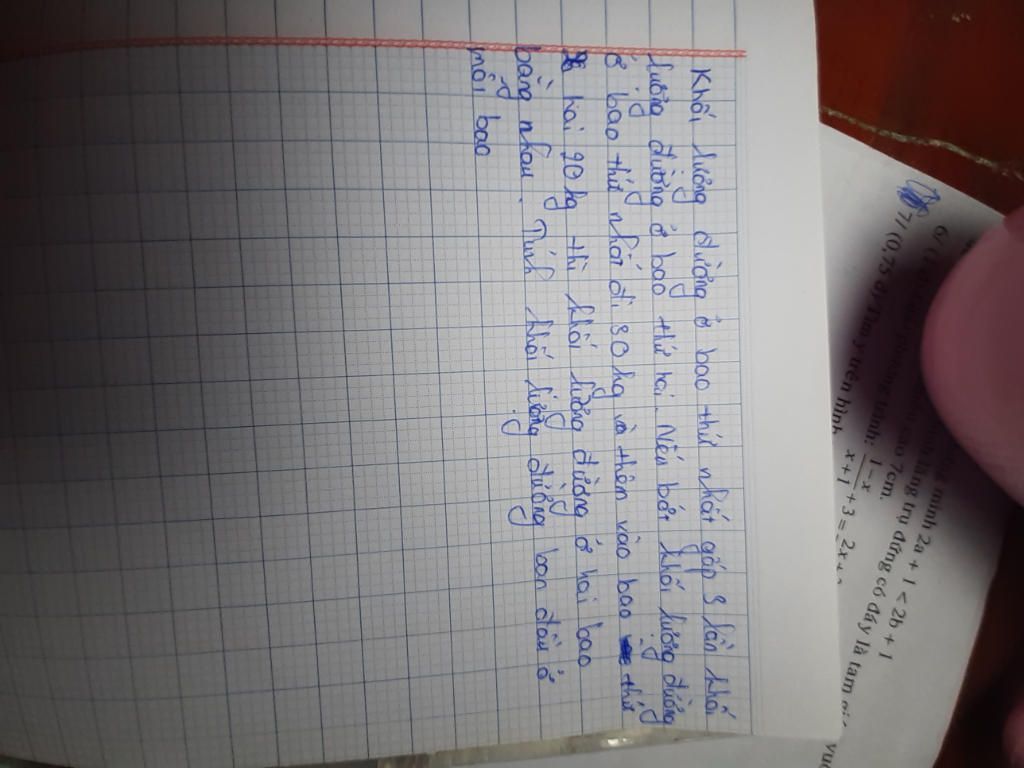 Khối lượng đường ở bao thứ nhất gấp 3 lần khối
lượng đường ở bao thứ hai. Nếu bớt khối lượng đường
ở bao thứ nhất đi 30 kg và thêm vào bao thứ
hai 20 kg thì khối lượng đường ở hai bao
bằng nhau. Tính khối lượng đường ban đầu ở
mỗi bao
minh 2a + 1 < 2b + 1
lăng trụ đứng có đáy là tam
cao 7cm.
6/ (1
phương trình: 1-x / x+1 + 3 = 2x+
7/ (0,75 đ) Tìm y trên hình